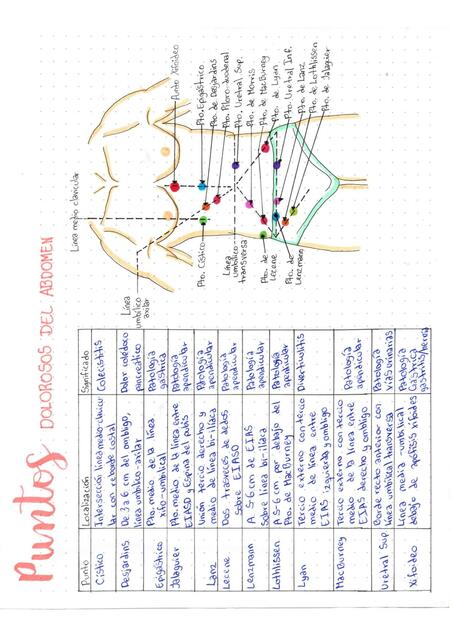 Puntos DOLOROSOS DEL ABDOMEN
Punto
Localización
Significado
Cístico
Intersección línea medio-clavicu
lar con reborde costal
Colecistitis
Desjardins
De 3 a 6 cm del ombligo,
línea umbílico-axilar
Dolor colédoco
pancreático
Epigástrico
Pto. medio de la línea
xifo-umbilical
Patología
gástrica
Jalaguier
Pto. medio de la línea entre
EIASD y Espina del pubis
Patología
apendicular
Lanz
Unión tercio derecho y
medio de línea bi-ilíaca
Patología
apendicular
Lecene
Dos traveces de dedos
sobre EIASD
Patología
apendicular
Lenzmann
A 5-6 cm de EIAS
Sobre línea bi-ilíaca
Patología
apendicular
Lothlissen
A 5-6 cm por debajo del
Pto. de MacBurney
Patología
apendicular
Lyan
Tercio externo con tercio
medio de línea entre
EIAS izquierda y ombligo
Diverticulitis
MacBurney
Tercio externo con tercio
medio de la línea entre
EIAS derecho y ombligo
Patología
apendicular
Uretral Sup.
Borde recto anterior con
línea umbilical transversa
Patología
vías urinarias
Xifoideo
Línea media-umbilical
debajo de apófisis xifoides
Patología
Gástrica
gastritis/hernia
Línea medio clavicular
Línea
umbílico
axilar
Pto. Cístico
Línea
umbílico
transversa
Pto. de
Lecene
Pto. de
Lenzmann
Punto Xifoideo
Pto. Epigástrico
Pto. de Desjardins
Pto. Pioro-duodenal
Pto. Uretral Sup.
Pto. de Morris
Pto. de MacBurney
Pto. de Lyon
Pto. Uretral Inf.
Pto. de Lanz
Pto. de Lothlissen
Pto. de Jalaguier